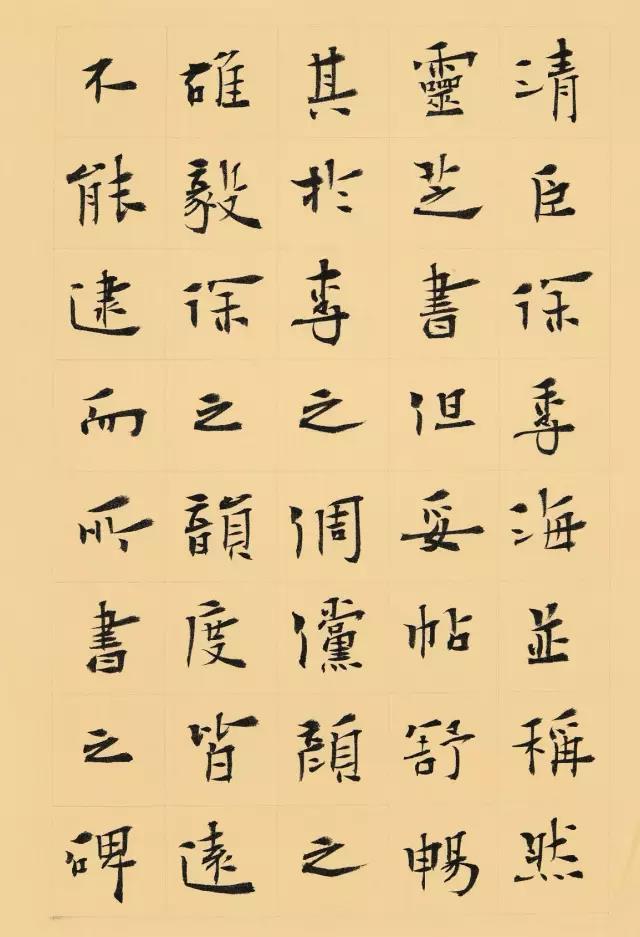 清臣徐季海並稱然
靈芝書但妥帖舒暢
其於李之倜儻顏之
雄毅徐之韻度皆遠
不能逮而所書之碑